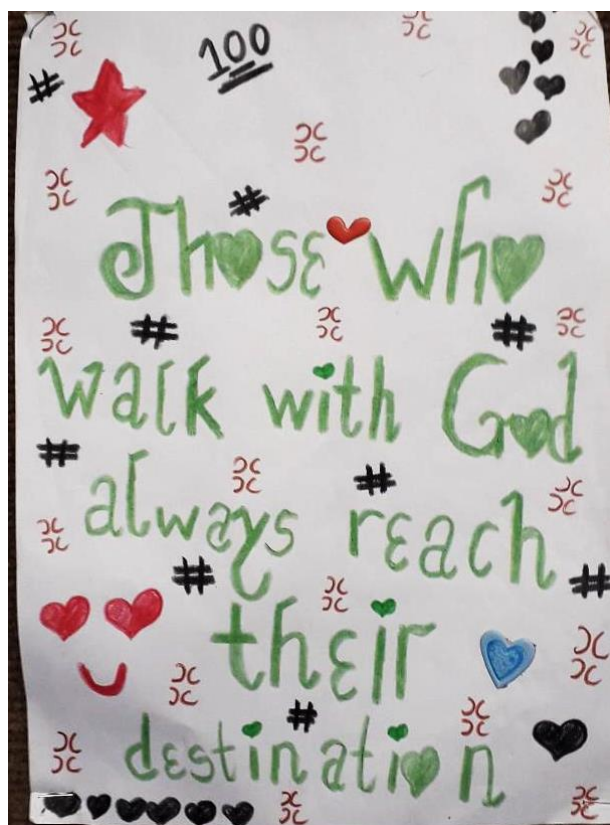 100
Those who
walk with God
always reach
their
destination